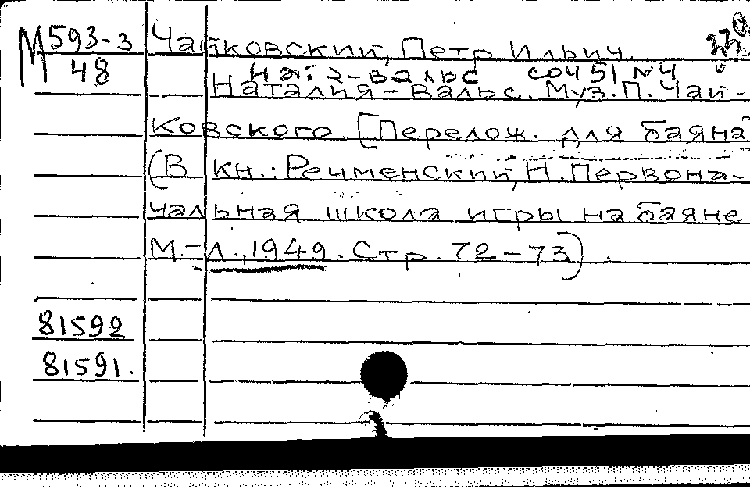 М 593-3
48
Чайковский, Петр Ильич.
На: 2-вальс соч 51 №4
Наталия-вальс. Муз. П. Чай-
ковского. [Перелож. для баяна]
(В кн.: Речменский, Н. Первона-
чальная школа игры на баяне
М.-Л., 1949. Стр. 72-73).
81592
81591.